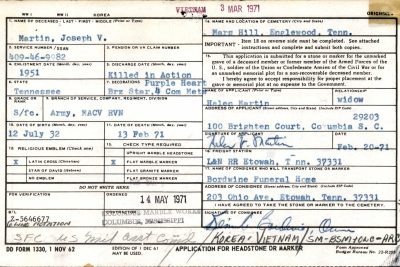 WW I WW II KOREA VIETNAM 3 MAR 1971 ORIGINAL
1. NAME OF DECEASED - LAST - FIRST - MIDDLE (Print or Type)
Martin, Joseph V.
14. NAME AND LOCATION OF CEMETERY (City and State)
Mars Hill, Englewood, Tenn.
IMPORTANT: Item 18 on reverse side must be completed. See attached instructions and complete and submit both copies.
2. SERVICE NUMBER
409-46-9082
3. PENSION OR VA CLAIM NUMBER
4. ENLISTMENT DATE (Month, day, year)
1951
5. DISCHARGE DATE (Month, day, year)
Killed in Action
6. STATE
Tennessee
7. DECORATIONS
Purple Heart
Brz Star, & Com Metr
This application is submitted for a stone or marker for the unmarked grave of a deceased member or former member of the Armed Forces of the U. S., soldier of the Union or Confederate Armies of the Civil War or for an unmarked memorial plot for a non-recoverable deceased member.
I hereby agree to accept responsibility for proper placement at the grave or memorial plot at no expense to the Government.
8. GRADE OR RANK
S/fc.
9. BRANCH OF SERVICE, COMPANY, REGIMENT, DIVISION
Army, MACV HVN
NAME OF APPLICANT
Helen Martin
RELATIONSHIP
widow
29203
100 Brighten Court, Columbia S. C.
12 July 32
13 Feb 71
SIGNATURE OF APPLICANT
DATE
Feb. 20-71
RELIGIOUS EMBLEM (Check one)
15. CHECK TYPE REQUIRED
UPRIGHT MARBLE HEADSTONE
X LATIN CROSS (Christian)
X FLAT MARBLE MARKER
STAR OF DAVID (Hebrew)
FLAT GRANITE MARKER
NO EMBLEM
FLAT BRONZE MARKER
16. FREIGHT STATION
L&N RR Etowah, Tenn. 37331
NAME OF CONSIGNEE WHO WILL TRANSPORT STONE OR MARKER
Bordwine Funeral Home
ADDRESS OF CONSIGNEE
203 Ohio Ave. Etowah, Tenn. 37331
DO NOT WRITE HERE
FOR VERIFICATION
ORDERED
14 MAY 1971
I HAVE AGREED TO TRANSPORT THE STONE OR MARKER TO THE CEMETERY.
SIGNATURE OF CONSIGNEE
Z-5646677
MARBLE WORKS
COLUMBUS, MISSISSIPPI
SFC US
KOREA-VIETNAM
DD FORM 1330, 1 NOV 62
EDITION OF 1 DEC 61 MAY BE USED
APPLICATION FOR HEADSTONE OR MARKER